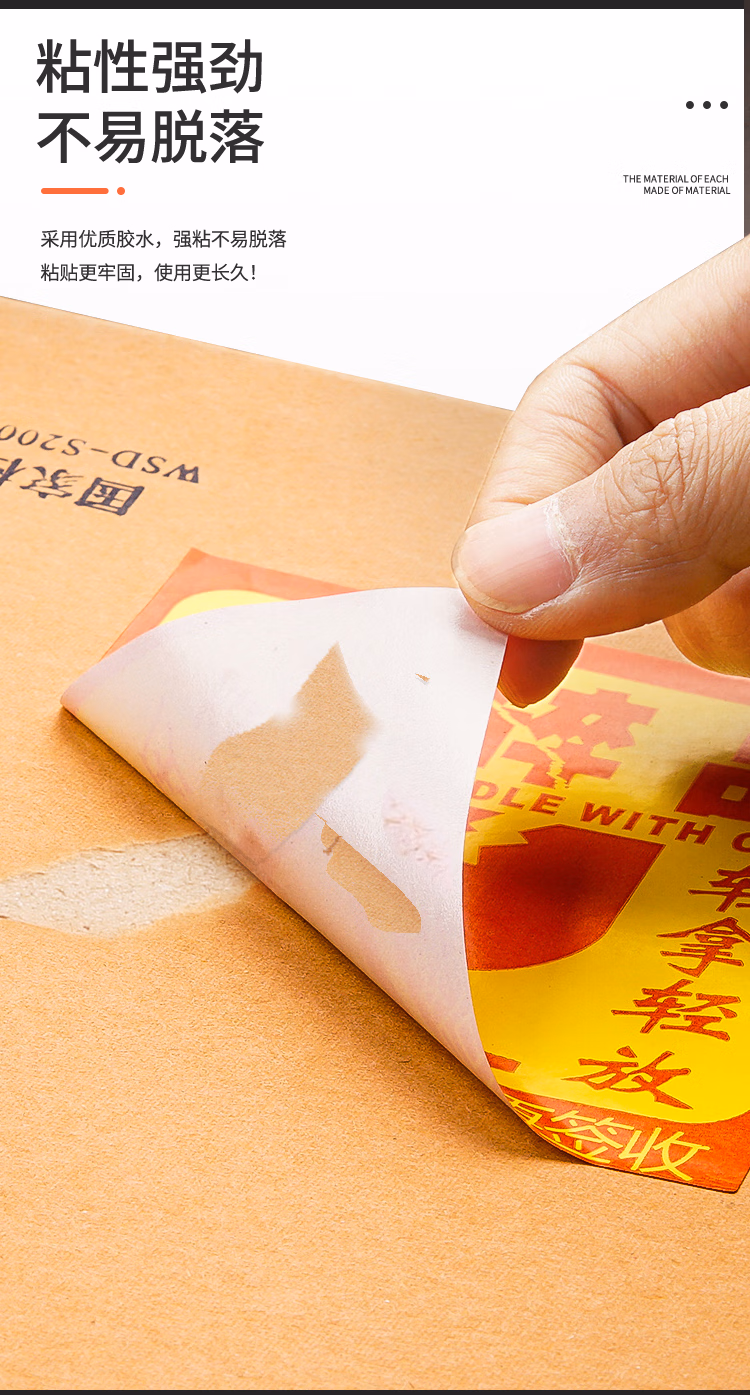 粘性强劲
不易脱落
THE MATERIAL OF EACH
MADE OF MATERIAL
采用优质胶水，强粘不易脱落
粘贴更牢固，使用更长久！
WSD-S200
国家
DLE WITH C
轻
拿
轻
放
签收